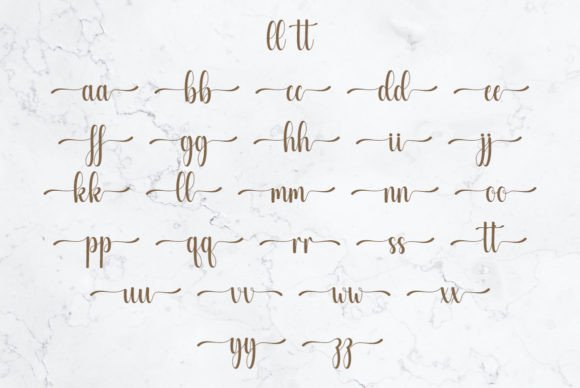 ll tt
aa bb cc dd ee
ff gg hh ii jj
kk ll mm nn oo
pp qq rr ss tt
uu vv ww xx
yy zz